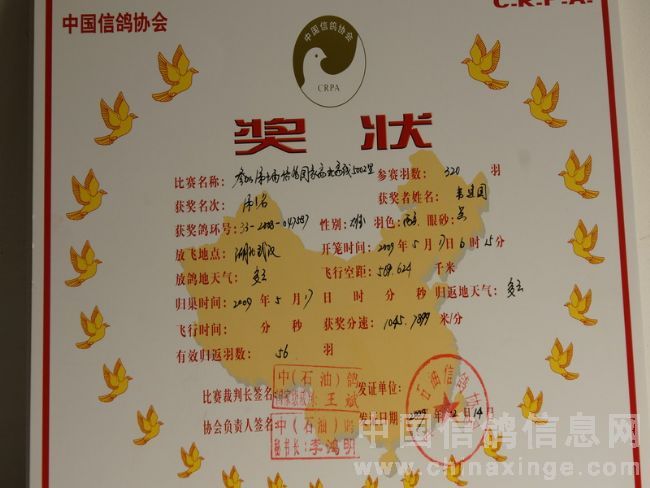 中国信鸽协会
C.R.P.A.
中国信鸽协会
CRPA
奖状
比赛名称: 500公里 参赛羽数: 320 羽
获奖名次: 第1名 获奖者姓名:
获奖鸽环号: 33-2008-047587 性别: 雄 羽色: 眼砂: 黄
放飞地点: 湖北武汉 开笼时间: 2009 年 5 月 17 日 6 时 25 分
放鸽地天气: 多云 飞行空距: 509.624 千米
归巢时间: 2009 年 5 月 17 日 时 分 秒 归返地天气: 多云
飞行时间: 分 秒 获奖分速: 1045.7899 米/分
有效归返羽数: 56 羽
中(石油)鸽
比赛裁判长签名 王斌 发证单位: 石油信鸽协
协会负责人签名 发证日期: 2009 年 12 月 14 日
中(石油)鸽
秘书长:李鸿明
中国信鸽信息网
www.chinaxinge.com